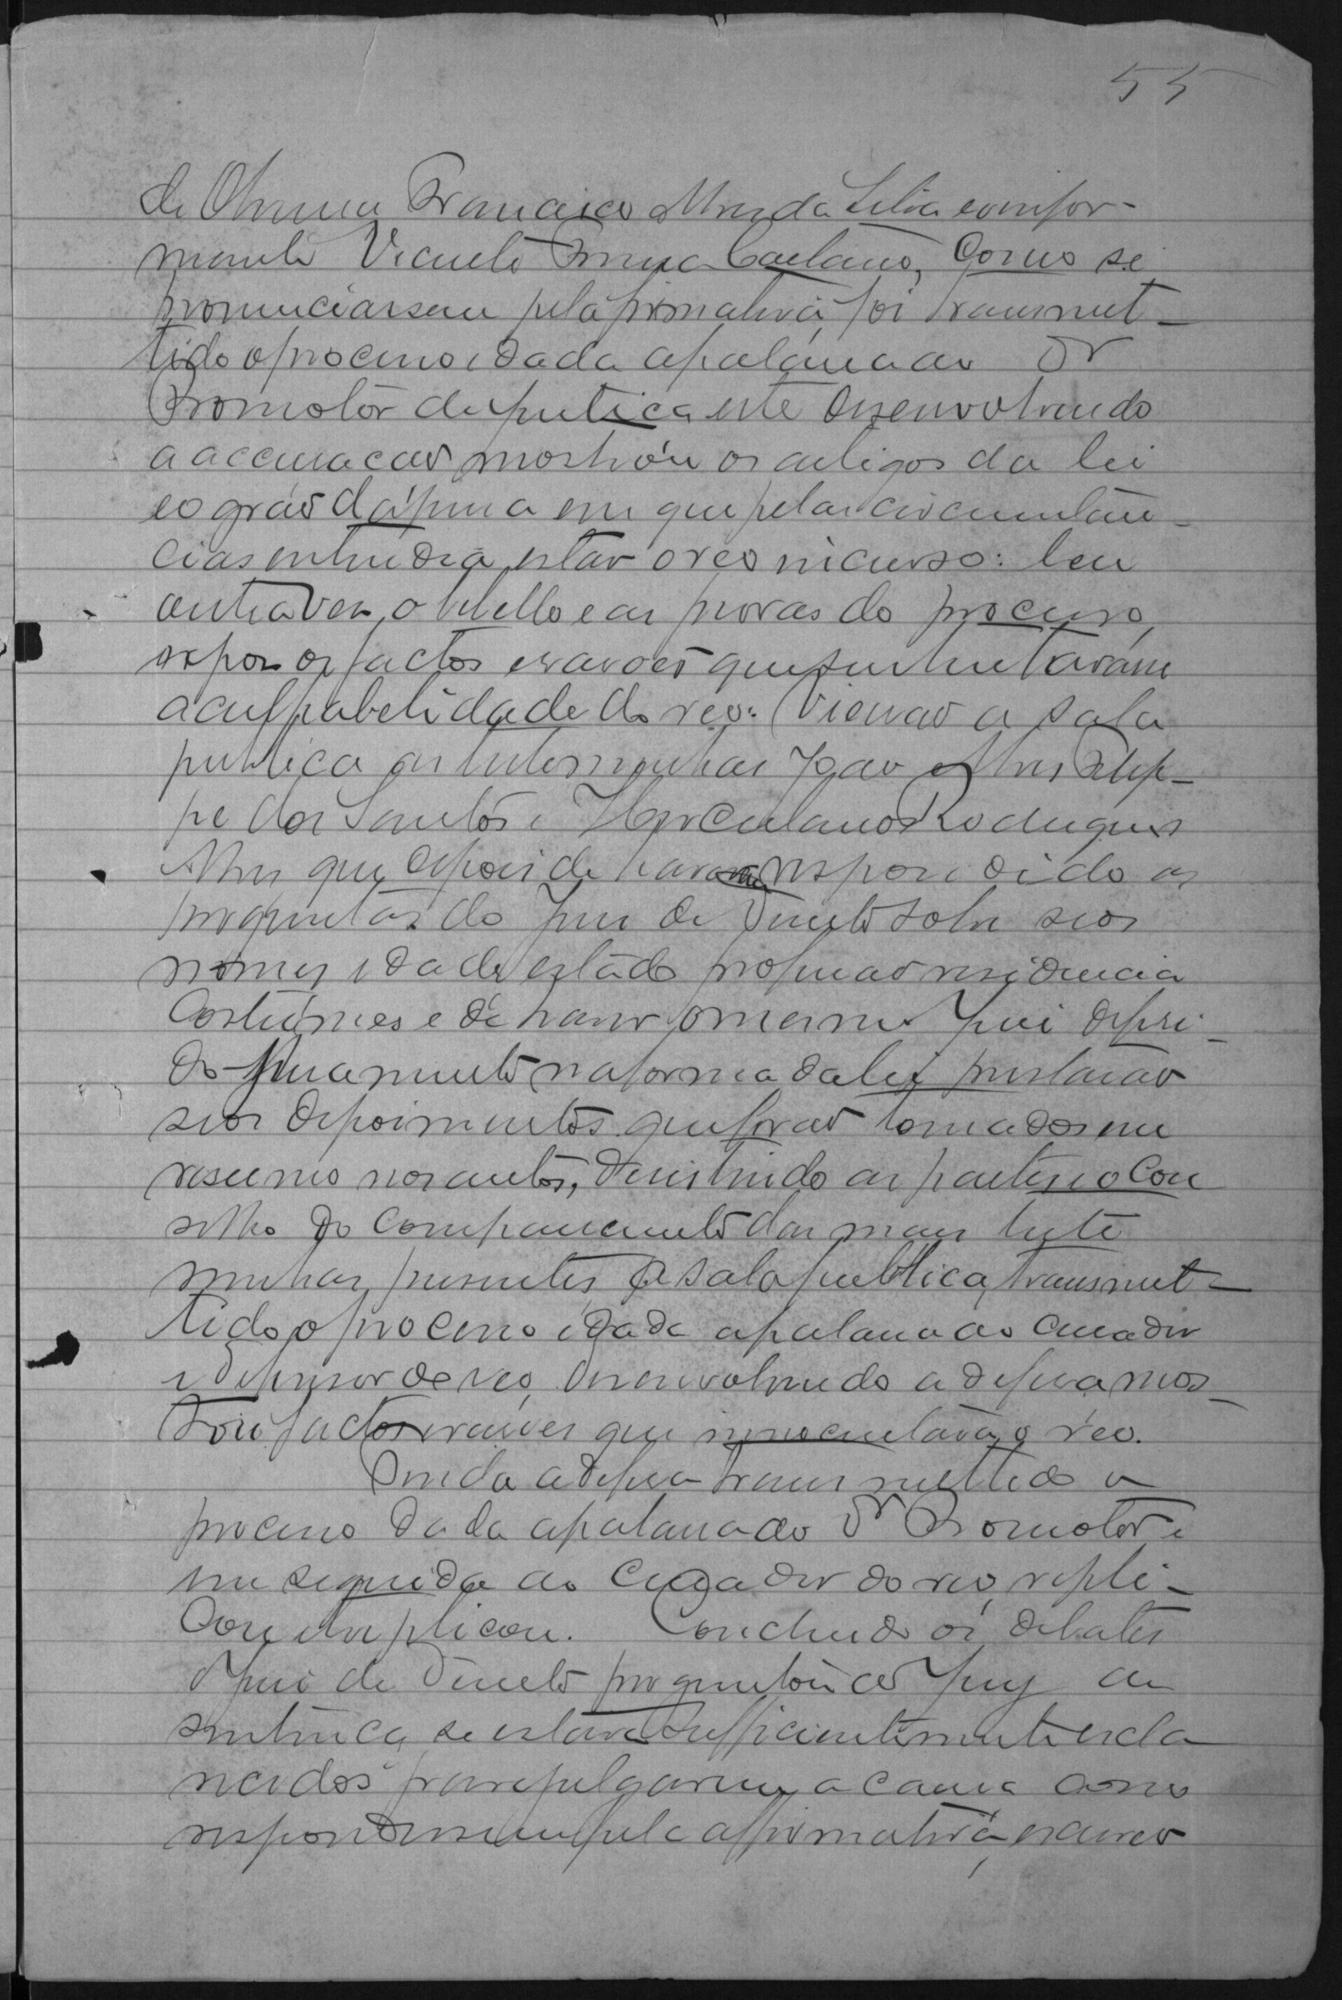 55
de Oliveira Francisco Alves da Silva e o infor-
mante Vicente Caetano, Como se
pronunciassem pela firmativa, foi transmet-
tido o processo e dada a palavra ao Dr
Promotor de justiça, este desenvolvendo
a accusação mostrou os artigos da lei
e o gráo da pena em que pelas circumstan-
cias entendia estar o reo incurso: leu
outra vez o libello e as provas do processo,
expoz os factos e rasões que sustentavam
a culpabelidade do reo: Vierão a sala
publica as testemunhas João Alves Felip-
pe dos Santos e Herculano Rodrigues
Alves que depois de haverem respondido as
proguntas do Juiz de Direito sobre seos
nomes idade estado profissão residencia
Costumes e de haver o mesmo Juiz deferi-
do juramento na forma da lei prestarão
seos depoimentos que forão tomados em
resumo nos autos, desistindo as partes e o Con
selho do comparecimento das mais teste
munhas presentes a sala publica, transmet-
tido o processo e dada a palavra ao curador
e defensor do reo, desenvolvendo a defesa mos-
trou factos e rasões que innocentavão o réo.
Finda a defesa transmettido o
processo dada a palavra ao Dr Promotor e
em seguida ao Curador do reo, repli-
cou e treplicou. Concluido os debates
o Juiz de Direito proguntou aos Juizes de
sentença se estavão sufficientemente escla
recidos para julgarem a causa como
respondessem pela affirmativa,